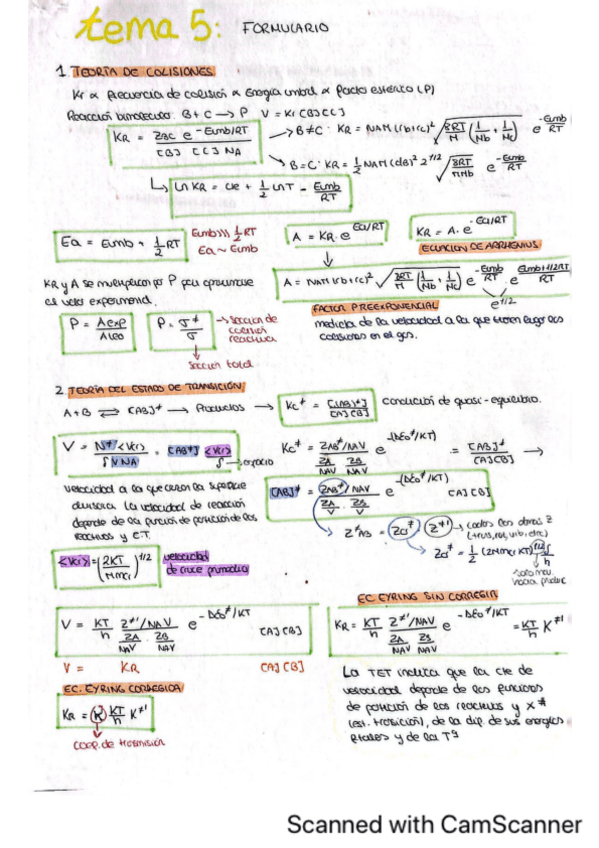 tema 5: FORMULARIO
1. TEORÍA DE COLISIONES
Kr ∝ Frecuencia de colisión ∝ Energía umbral ∝ factor estérico (P)
Reacción bimolecular: B + C → P V = Kr [B][C]
KR = ZBC e^-Eumb/RT / [B] [C] NA
→ B≠C: KR = NAπ(rb+rc)² √(8RT/π (1/Mb + 1/Mc)) e^-Eumb/RT
→ B=C: KR = 1/2 NAπ(dB)² 2^1/2 √(8RT/πMb) e^-Eumb/RT
↳ Ln KR = cte + 1/2 LnT - Eumb/RT
Ea = Eumb + 1/2 RT
Eumb>>> 1/2 RT
Ea ~ Eumb
A = KR · e^Ea/RT
KR = A · e^-Ea/RT
ECUACIÓN DE ARRHENIUS
KR y A se multiplican por P para aproximarse
al valor experimental.
A = NAπ(rb+rc)² √(8RT/π (1/Mb + 1/Mc)) e^-Eumb/RT · e^Eumb+1/2RT/RT
e^1/2
P = Aexp/Ateo
P = σ*/σ
→ Sección de colisión reactiva
Sección total
FACTOR PREEXPONENCIAL
medida de la velocidad a la que tienen lugar las
colisiones en el gas.
2. TEORÍA DEL ESTADO DE TRANSICIÓN
A+B ⇌ [AB]≠ → Productos → Kc≠ = [(AB)≠]/[A][B] condición de quasi-equilibrio.
V = N≠ <Vcr> / δ V NA = [AB≠] <Vcr>/δ → espacio
Kc≠ = ZAB≠/NAV / (ZA/NAV · ZB/NAV) e^-(Δε0≠/KT) = [AB]≠/[A][B] →
velocidad a la que cruzan la superficie
divisoria. La velocidad de reacción
depende de las función de partición de los
reactivos y E.T.
[AB]≠ = ZAB≠/NAV / (ZA/V · ZB/V) e^-(Δε0≠/KT) [A][B]
Z≠AB = Za≠ Z≠' → todos los demás Z
(trus, rot, vib, elec)
Za≠ = 1/2 (2πmcr KT)^1/2 δ/h
<Vcr> = (2KT/πmcr)^1/2
velocidad
de cruce promedio
V = KT/h Z≠'/NAV / (ZA/NAV · ZB/NAV) e^-Δε0≠/KT [A][B]
V = KR [A][B]
EC. EYRING SIN CORREGIR
KR = KT/h Z≠'/NAV / (ZA/NAV · ZB/NAV) e^-Δε0≠/KT = KT/h K≠'
EC. EYRING CORREGIDA
KR = K KT/h K≠'
coef. de trasmisión
La TET indica que la cte de
velocidad depende de las funciones
de partición de los reactivos y x≠
(est. trasición), de la dif. de sus energías
ptales y de la Tª
Scanned with CamScanner